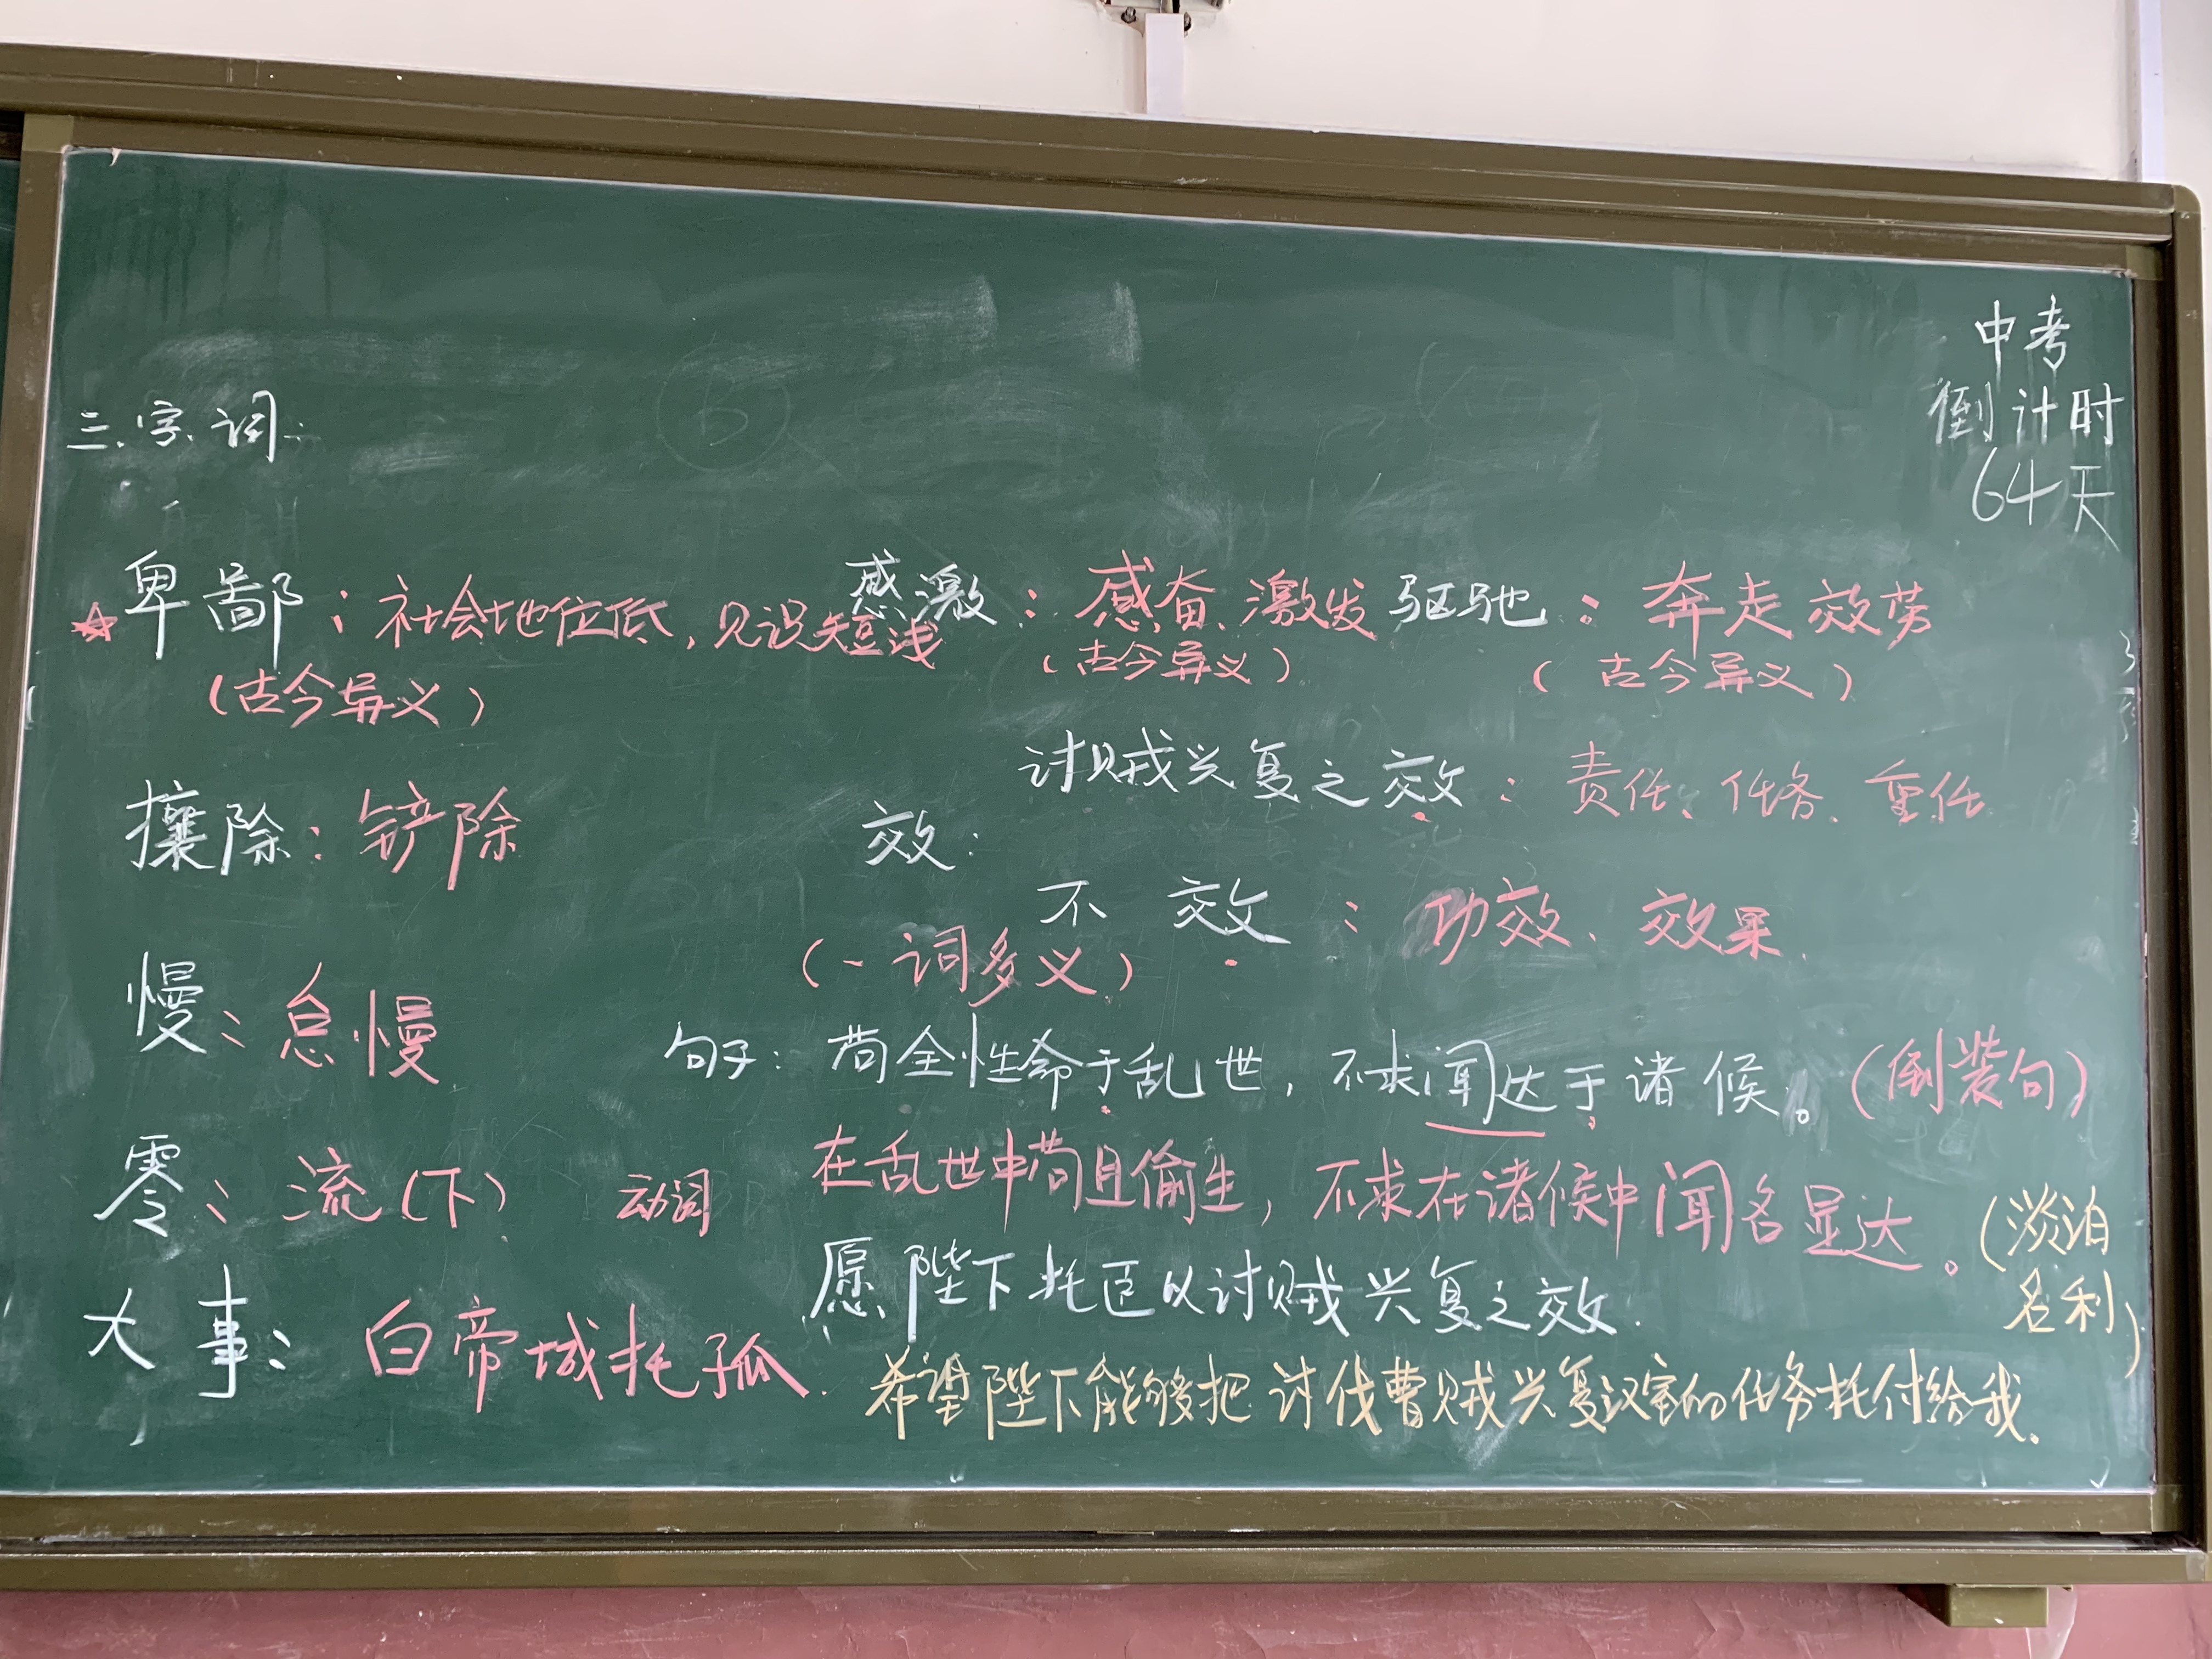 中考
倒计时
64天
三、字、词:
卑鄙:社会地位低,见识短浅
(古今异义)
感激:感奋、激发
(古今异义)
驱驰:奔走效劳
(古今异义)
攘除:铲除
效:
讨贼兴复之效:责任、任务、重任
不效:功效、效果.
(一词多义)
慢:怠慢
句子:苟全性命于乱世,不求闻达于诸候。(倒装句)
零:流(下) 动词
在乱世中苟且偷生,不求在诸候中闻名显达。(淡泊
名利)
大事:白帝城托孤.
愿陛下托臣以讨贼兴复之效.
希望陛下能够把讨伐曹贼兴复汉室的任务托付给我.